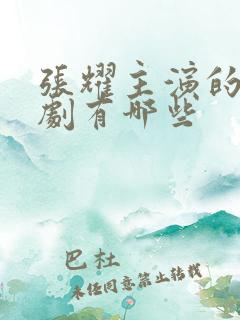 張耀主演的
劇有哪些
巴杜
未经同意禁止转载